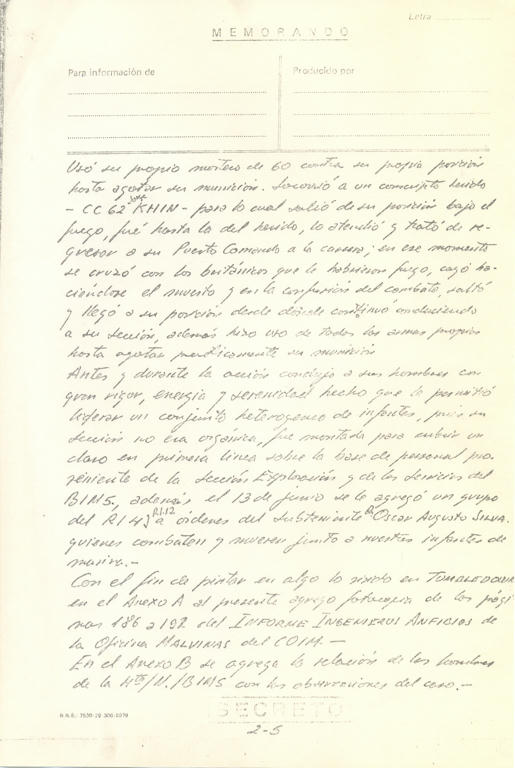 Letra
MEMORANDO
Para información de
Producido por
Usó su propio mortero de 60 contra su propia posición
hasta agotar su munición. Socorrió a un conscripto herido
- CC 62 José KHIN - para lo cual salió de su posición bajo el
fuego, fué hasta la del herido, lo atendió y trató de re-
gresar a su Puesto Comando a la carrera; en ese momento
se cruzó con los británicos que le habrieron fuego, cayó ha-
ciéndose el muerto y en la confusión del combate, saltó
y llegó a su posición desde donde continuó conduciendo
a su sección, además hizo uso de todas las armas propias
hasta agotar prácticamente su munición
Antes y durante la acción condujo a sus hombres con
gran vigor, energía y serenidad hecho que le permitió
liderar un conjunto heterogeneo de infantes, pues su
sección no era orgánica, fue montada para cubrir un
claro en primera línea sobre la base de personal pro-
veniente de la Sección Exploración y de los servicios del
BIM5, además el 13 de junio se le agregó un grupo
del RI4 y RI12 a órdenes del Subteniente Oscar Augusto SILVA.
quienes combaten y mueren junto a nuestros infantes de
marina.-
Con el fin de pintar en algo lo vivido en TUMBLEDOWN
en el Anexo A al presente agrego fotocopia de las pági-
nas 186 a 198 del INFORME INGENIEROS ANFIBIOS de
la Oficina MALVINAS del COIM.-
En el Anexo B se agrega la relación de los hombres
de la 4ta/N/BIM5 con las observaciones del caso.-
SECRETO
2-5